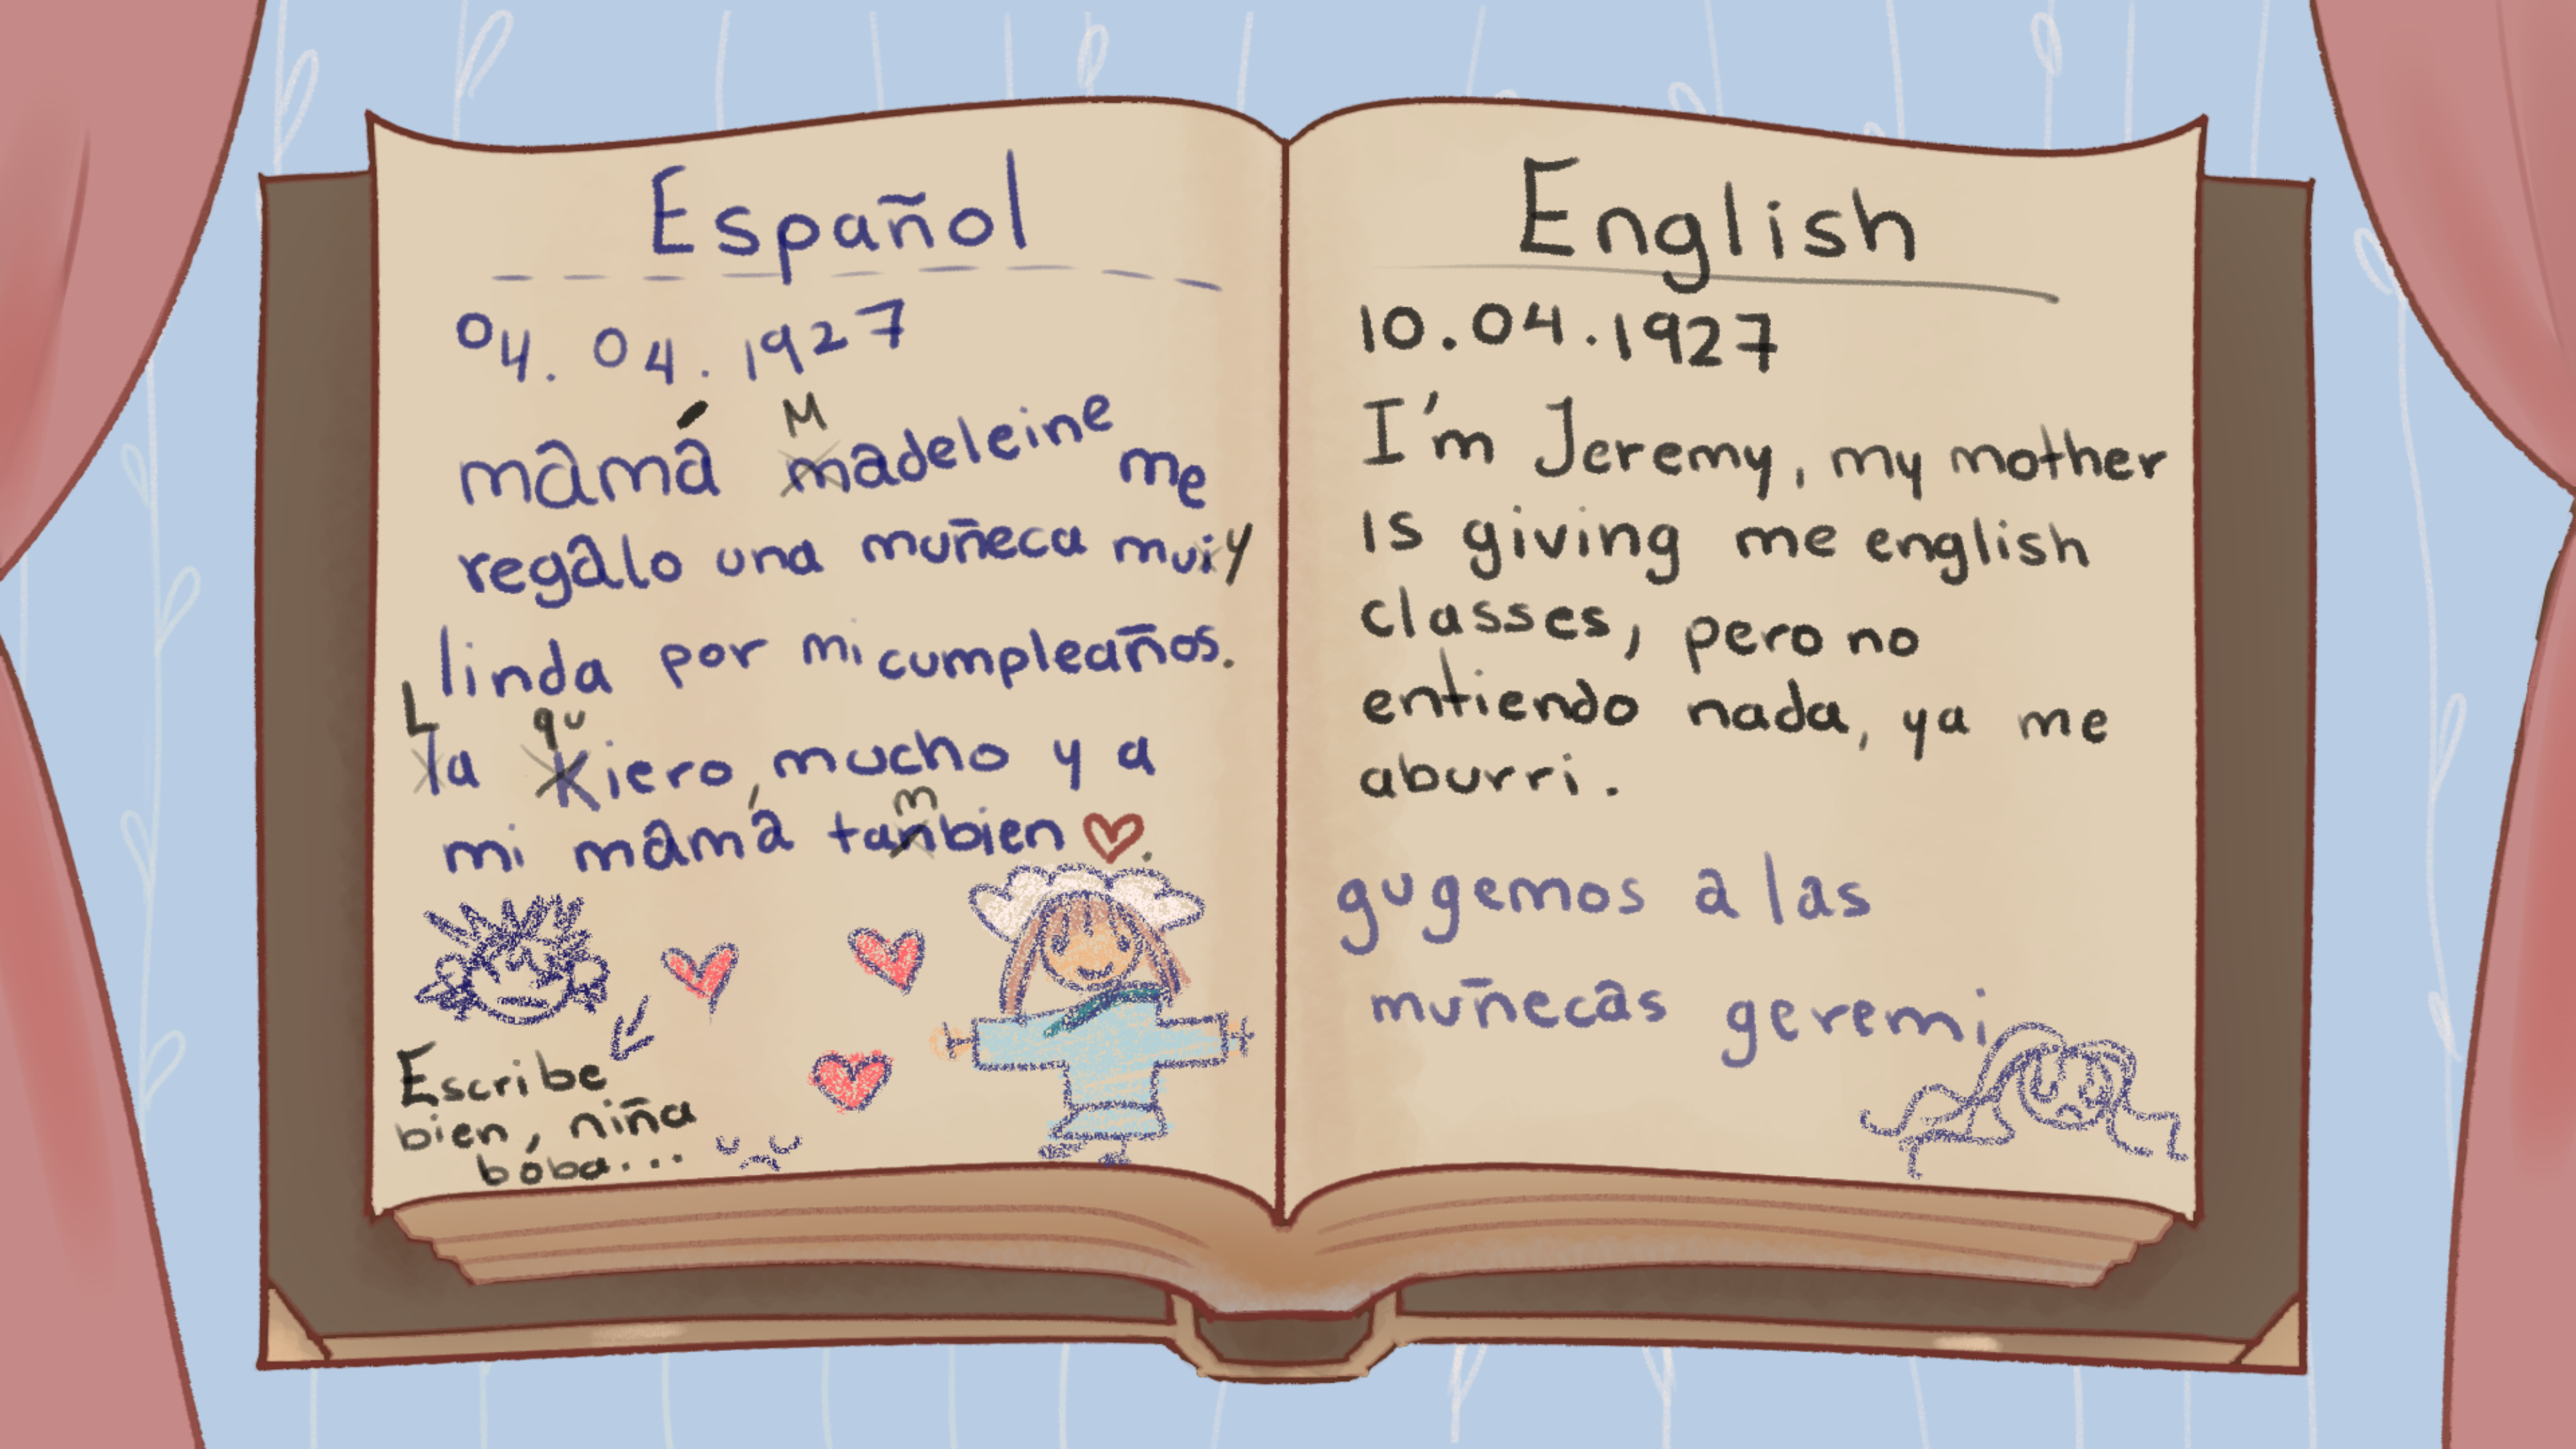 Español
04.04.1927
mamá madeleine me
M
regalo una muñeca mui y
linda por mi cumpleaños.
L qu
la kiero, mucho y a
m
mi mamá tanbien
Escribe
bien, niña
boba...
English
10.04.1927
I'm Jeremy, my mother
is giving me english
classes, pero no
entiendo nada, ya me
aburri.
gugemos a las
muñecas geremi